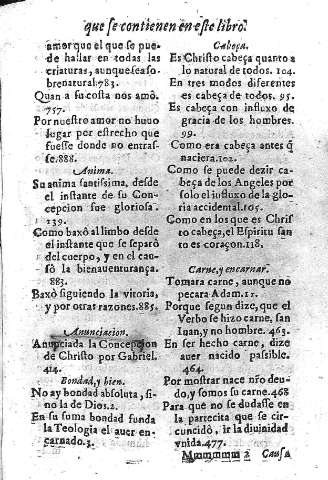 que se contienen en este libro.
amor que el que se pue-
de hallar en todas las
criaturas, aunque sea so-
brenatural.783.
Quan a su costa nos amò.
757.
Por nuestro amor no huuo
lugar por estrecho que
fuesse donde no entras-
se.888.
Anima.
Su anima santissima, desde
el instante de su Con-
cepcion fue gloriosa.
139.
Como baxò al limbo desde
el instante que se separò
del cuerpo, y en el cau-
sò la bienauenturança.
883.
Baxò siguiendo la vitoria,
y por otras razones.885.
Anunciacion.
Anunciada la Concepcion
de Christo por Gabriel.
414.
Bondad, y bien.
No ay bondad absoluta, si-
no la de Dios.2.
En su suma bondad funda
la Teologia el auer en-
carnado.3.
Cabeça.
Es Christo cabeça quanto a
lo natural de todos. 104.
En tres modos diferentes
es cabeça de todos. 95.
Es cabeça con influxo de
gracia de los hombres.
99.
Como era cabeça antes q̃
naciera.102.
Como se puede dezir ca-
beça de los Angeles por
solo el influxo de la glo-
ria accidental.105.
Como en los que es Chris-
to cabeça, el Espiritu san-
to es coraçon.118.
Carne, y encarnar.
Tomara carne, aunque no
pecara Adam.11.
Porque segun dize, que el
Verbo se hizo carne, san
Iuan, y no hombre. 463.
En ser hecho carne, dize
auer nacido passible.
464.
Por mostrar nace nr̃o deu-
do, y somos su carne.468
Para que no se dudasse en
la partecita que se cir-
cuncidò, ir la diuinidad
vnida.477.
Mmmmmm 2 Causa